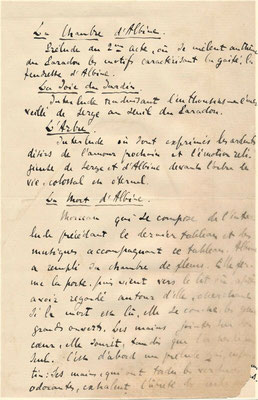 La Chambre d'Albine.
Prélude du 2me acte, où se mêlent au thème
du Paradou les motifs caractérisant la gaîté, la
tendresse d'Albine.
La Joie du Jardin.
Interlude traduisant l'enthousiasme émer-
veillé de Serge au seuil du Paradou.
L'Arbre.
Interlude où sont exprimés les ardents
désirs de l'amour prochain et l'émotion reli-
gieuse de Serge et d'Albine devant l'arbre de
vie, colossal et éternel.
La Mort d'Albine.
Morceau qui se compose de l'inter-
lude précédant le dernier tableau et des
musiques accompagnant ce tableau. Albine
a rempli sa chambre de fleurs. Elle
la porte, puis vient vers le lit
avoir regardé autour d'elle, cherchant
si la mort est là, elle se couche les yeux
grands ouverts. Ses mains jointes sur son
cœur, elle sourit, tandis que
seul. C'est d'abord un prélude

odorantes, exhalent